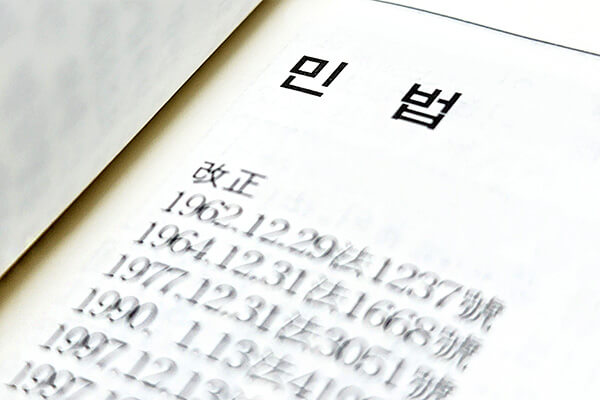 민 법
改正
1962.12.29法1237號
1964.12.31法1668號
1977.12.31法3051號
1990. 1.13法
1997.12.13法
1997.